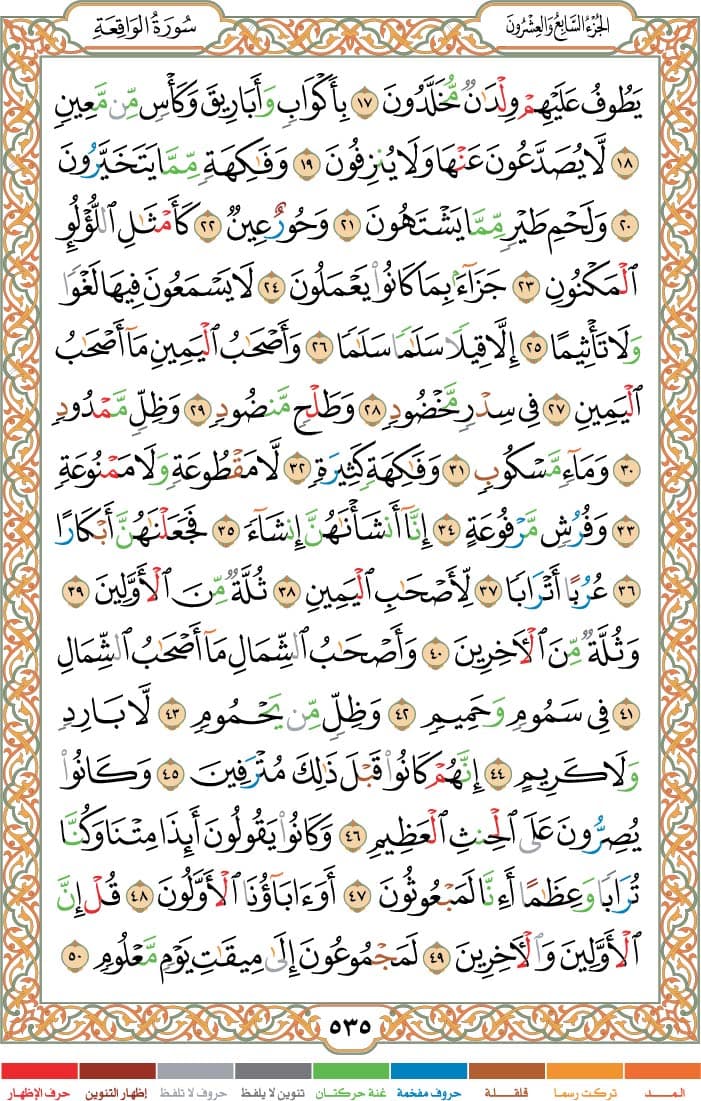 الجُزءُ السَّابِعُ وَالعِشْرُونَ
سُورَةُ الوَاقِعَةِ
يَطُوفُ عَلَيْهِمْ وِلْدَٰنٌ مُّخَلَّدُونَ ١٧ بِأَكْوَابٍ وَأَبَارِيقَ وَكَأْسٍ مِّن مَّعِينٍ
١٨ لَّا يُصَدَّعُونَ عَنْهَا وَلَا يُنزِفُونَ ١٩ وَفَٰكِهَةٍ مِّمَّا يَتَخَيَّرُونَ
٢٠ وَلَحْمِ طَيْرٍ مِّمَّا يَشْتَهُونَ ٢١ وَحُورٌ عِينٌ ٢٢ كَأَمْثَٰلِ اللُّؤْلُؤِ
الْمَكْنُونِ ٢٣ جَزَآءًۢ بِمَا كَانُوا۟ يَعْمَلُونَ ٢٤ لَا يَسْمَعُونَ فِيهَا لَغْوًا
وَلَا تَأْثِيمًا ٢٥ إِلَّا قِيلًا سَلَٰمًا سَلَٰمًا ٢٦ وَأَصْحَٰبُ الْيَمِينِ مَآ أَصْحَٰبُ
الْيَمِينِ ٢٧ فِى سِدْرٍ مَّخْضُودٍ ٢٨ وَطَلْحٍ مَّنضُودٍ ٢٩ وَظِلٍّ مَّمْدُودٍ
٣٠ وَمَآءٍ مَّسْكُوبٍ ٣١ وَفَٰكِهَةٍ كَثِيرَةٍ ٣٢ لَّا مَقْطُوعَةٍ وَلَا مَمْنُوعَةٍ
٣٣ وَفُرُشٍ مَّرْفُوعَةٍ ٣٤ إِنَّآ أَنشَأْنَٰهُنَّ إِنشَآءً ٣٥ فَجَعَلْنَٰهُنَّ أَبْكَارًا
٣٦ عُرُبًا أَتْرَابًا ٣٧ لِّأَصْحَٰبِ الْيَمِينِ ٣٨ ثُلَّةٌ مِّنَ الْأَوَّلِينَ ٣٩
وَثُلَّةٌ مِّنَ الْآخِرِينَ ٤٠ وَأَصْحَٰبُ الشِّمَالِ مَآ أَصْحَٰبُ الشِّمَالِ
٤١ فِى سَمُومٍ وَحَمِيمٍ ٤٢ وَظِلٍّ مِّن يَحْمُومٍ ٤٣ لَّا بَارِدٍ
وَلَا كَرِيمٍ ٤٤ إِنَّهُمْ كَانُوا۟ قَبْلَ ذَٰلِكَ مُتْرَفِينَ ٤٥ وَكَانُوا۟
يُصِرُّونَ عَلَى الْحِنثِ الْعَظِيمِ ٤٦ وَكَانُوا۟ يَقُولُونَ أَئِذَا مِتْنَا وَكُنَّا
تُرَابًا وَعِظَٰمًا أَءِنَّا لَمَبْعُوثُونَ ٤٧ أَوَءَابَآؤُنَا الْأَوَّلُونَ ٤٨ قُلْ إِنَّ
الْأَوَّلِينَ وَالْآخِرِينَ ٤٩ لَمَجْمُوعُونَ إِلَىٰ مِيقَٰتِ يَوْمٍ مَّعْلُومٍ ٥٠
٥٣٥
المـــد
تركت رسما
قلقـــلة
حروف مفخمة
غنة حركتان
تنوين لا يلفظ
حروف لا تلفظ
إظهار التنوين
حرف الإظهار